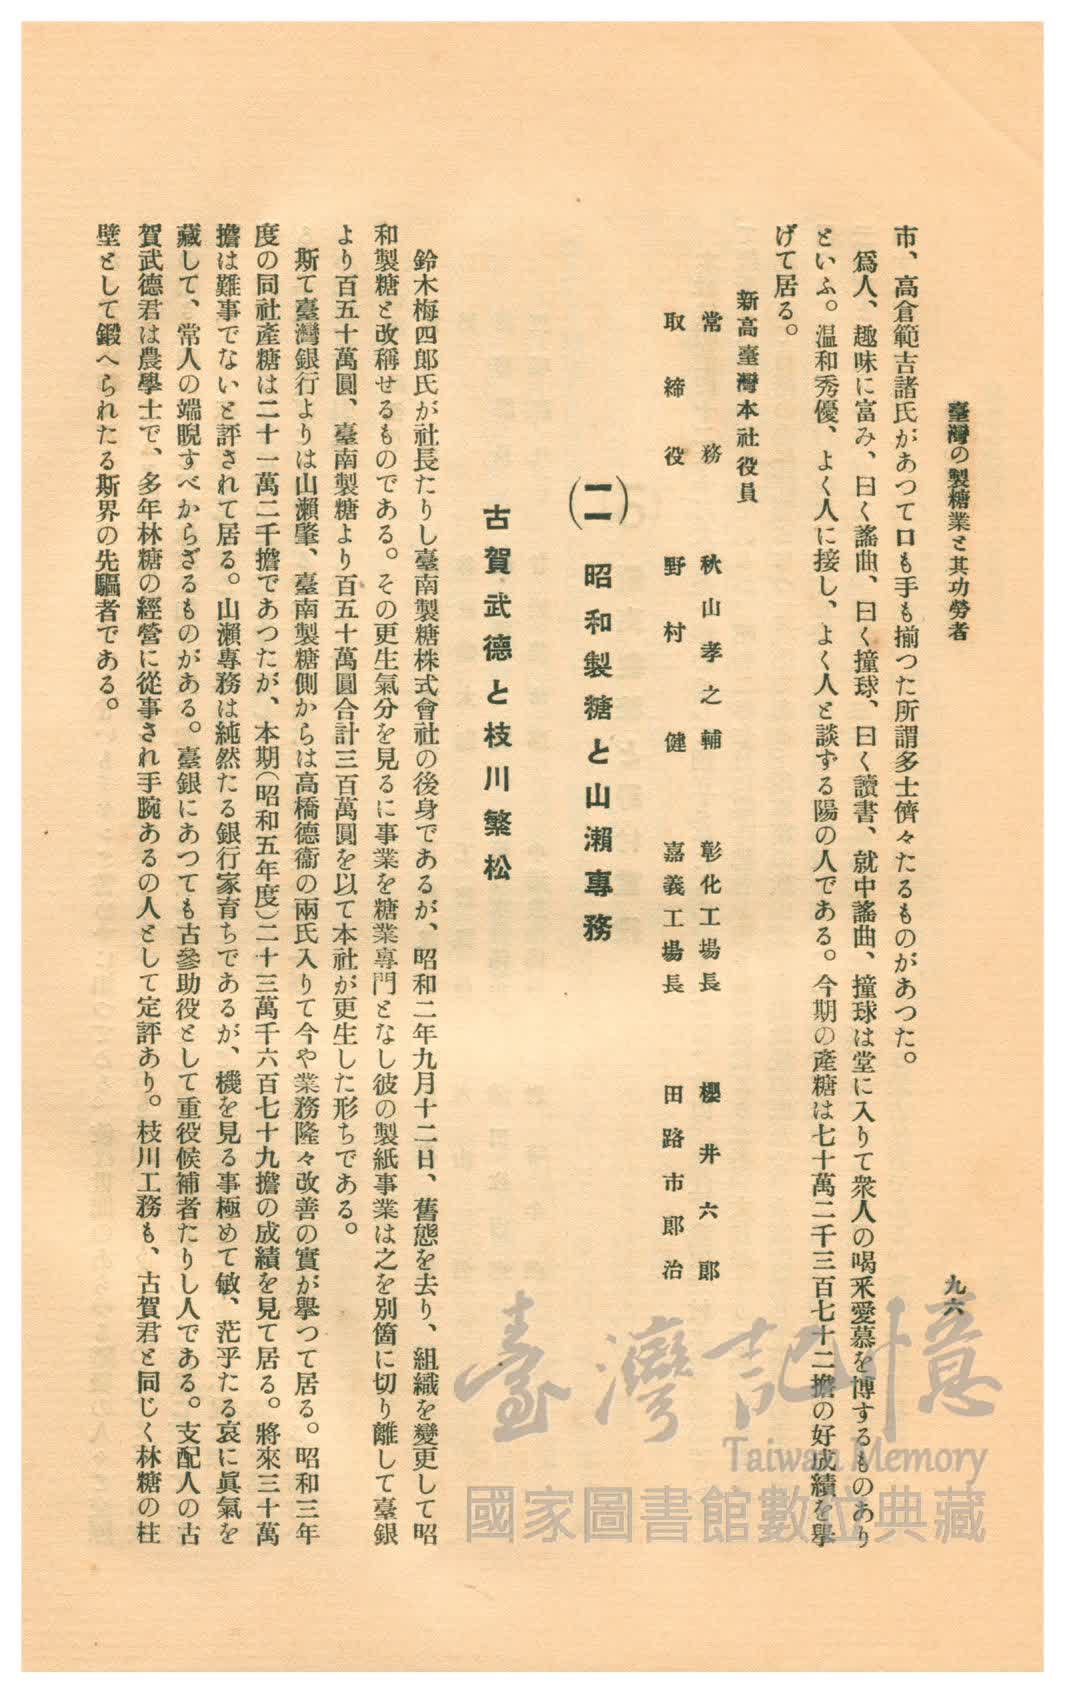 臺灣の製糖業と其功勞者
九六
市、高倉範吉諸氏があつて口も手も揃つた所謂多士儕々たるものがあつた。
爲人、趣味に富み、曰く謠曲、曰く撞球、曰く讀書、就中謠曲、撞球は堂に入りて衆人の喝釆愛慕を博するものあり
といふ。温和秀優、よく人に接し、よく人と談ずる陽の人である。今期の產糖は七十萬二千三百七十二擔の好成績を擧
げて居る。
新高臺灣本社役員
常務 秋山孝之輔 彰化工場長 櫻井六郎
取締役 野村健 嘉義工場長 田路市郞治
(二) 昭和製糖と山瀨專務
古賀武德と枝川繁松
鈴木梅四郎氏が社長たりし臺南製糖株式會社の後身であるが、昭和二年九月十二日、舊態を去り、組織を變更して昭
和製糖と改稱せるものである。その更生氣分を見るに事業を糖業專門となし彼の製紙事業は之を別箇に切り離して臺銀
より百五十萬圓、臺南製糖より百五十萬圓合計三百萬圓を以て本社が更生した形ちである。
斯て臺灣銀行よりは山瀨肇、臺南製糖側からは高橋德衞の兩氏入りて今や業務隆々改善の實が擧つて居る。昭和三年
度の同社產糖は二十一萬二千擔であつたが、本期(昭和五年度)二十三萬千六百七十九擔の成績を見て居る。將來三十萬
擔は難事でないと評されて居る。山瀨專務は純然たる銀行家育ちであるが、機を見る事極めて敏、茫乎たる哀に眞氣を
藏して、常人の端睨すべからざるものがある。臺銀にあつても古參助役として重役候補者たりし人である。支配人の古
賀武德君は農學士で、多年林糖の經營に從事され手腕あるの人として定評あり。枝川工務も、古賀君と同じく林糖の柱
壁として鍛へられたる斯界の先驅者である。
臺灣記憶
Taiwan Memory
國家圖書館數位典藏